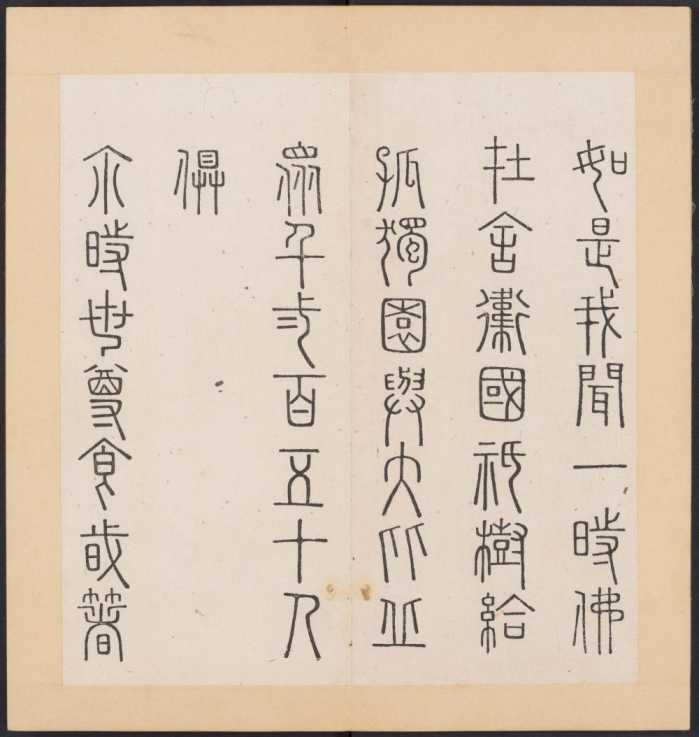 如是我聞一時佛
在舍衛國祇樹給
孤獨園與大比丘
眾千二百五十人
俱
尒時世尊食時著